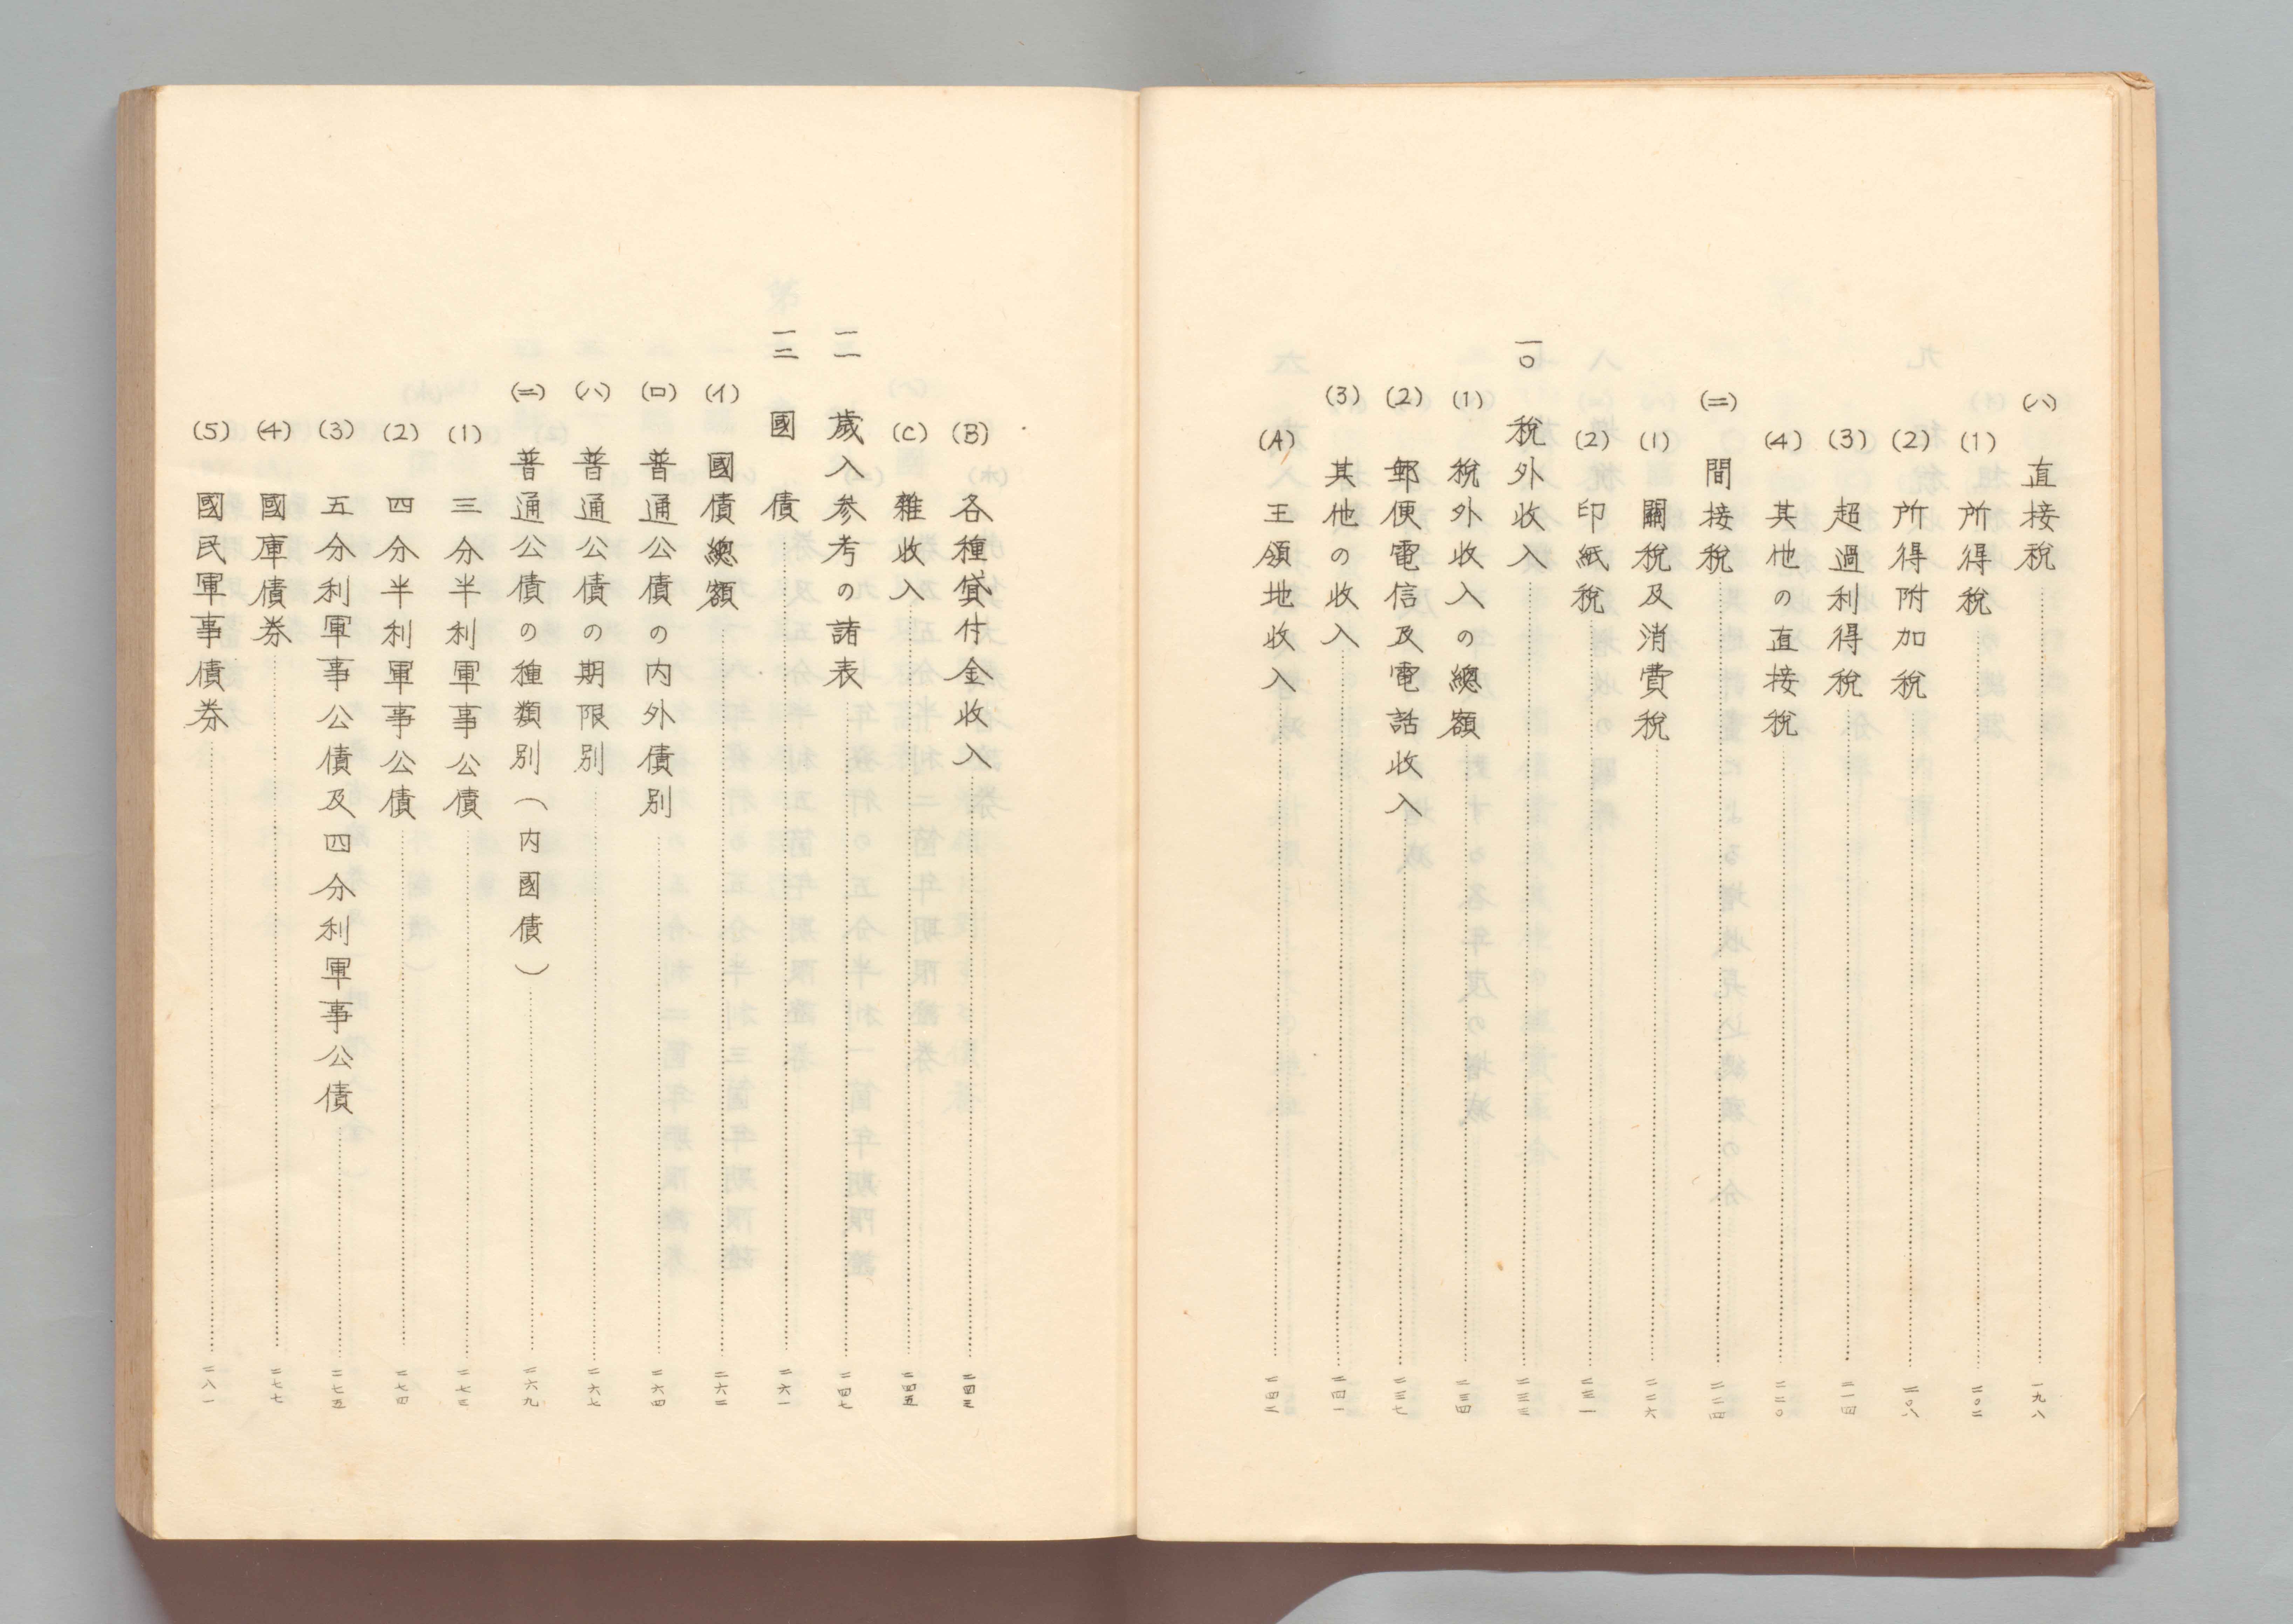 (ハ) 直接税 一九八
(1) 所得税 二〇二
(2) 所得附加税 二〇八
(3) 超過利得税 二一四
(4) 其他の直接税 二二〇
(ニ) 間接税 二二四
(1) 關税及消費税 二二六
(2) 印紙税 二三一
一〇 税外收入 二三三
(1) 税外收入の總額 二三四
(2) 郵便電信及電話收入 二三七
(3) 其他の收入 二四一
(A) 王領地收入
(B) 各種貸付金收入 二四三
(C) 雜收入 二四五
一一 歳入参考の諸表 二四七
一二 國債 二六一
(イ) 國債總額 二六二
(ロ) 普通公債の内外債別 二六四
(ハ) 普通公債の期限別 二六七
(ニ) 普通公債の種類別(内國債) 二六九
(1) 三分半利軍事公債 二七三
(2) 四分半利軍事公債 二七四
(3) 五分利軍事公債及四分利軍事公債 二七五
(4) 國庫債券 二七七
(5) 國民軍事債券 二八一